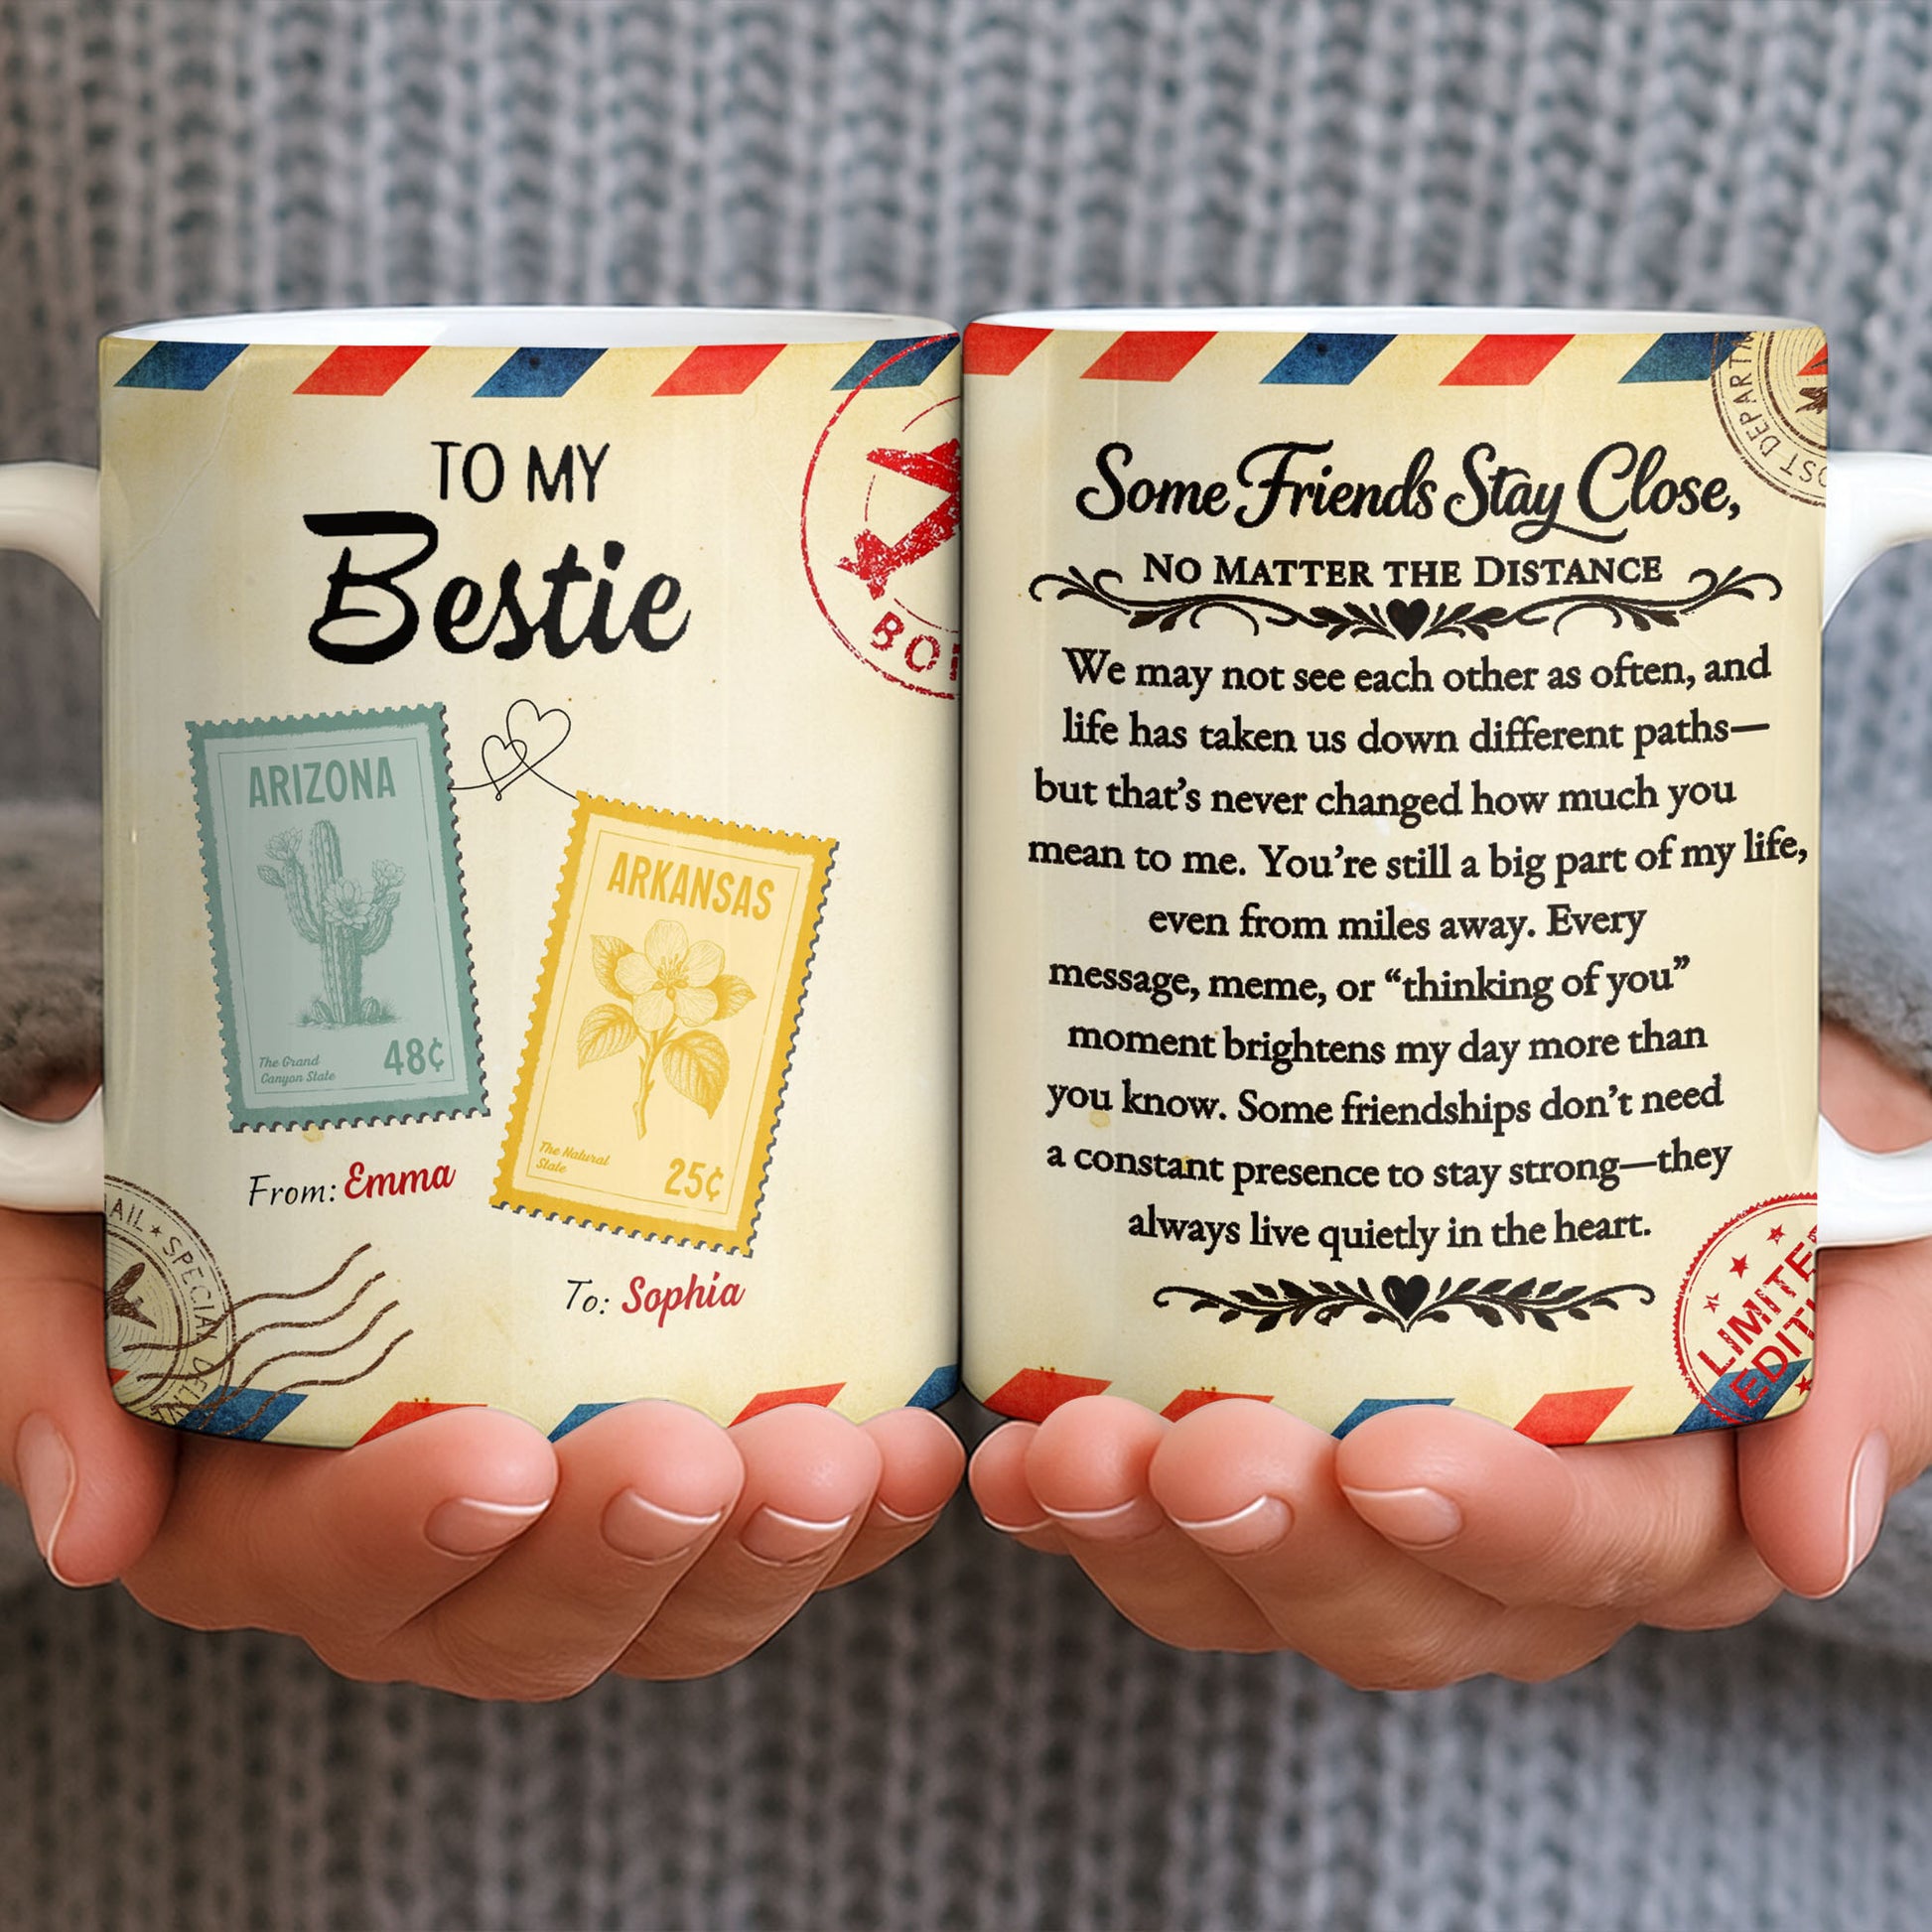 TO MY
Bestie
ARIZONA
The Grand
Canyon State
48¢
ARKANSAS
The Natural
State
25¢
From: Emma
To: Sophia
Some Friends Stay Close,
NO MATTER THE DISTANCE
We may not see each other as often, and
life has taken us down different paths—
but that’s never changed how much you
mean to me. You’re still a big part of my life,
even from miles away. Every
message, meme, or “thinking of you”
moment brightens my day more than
you know. Some friendships don’t need
a constant presence to stay strong—they
always live quietly in the heart.
SPECIAL